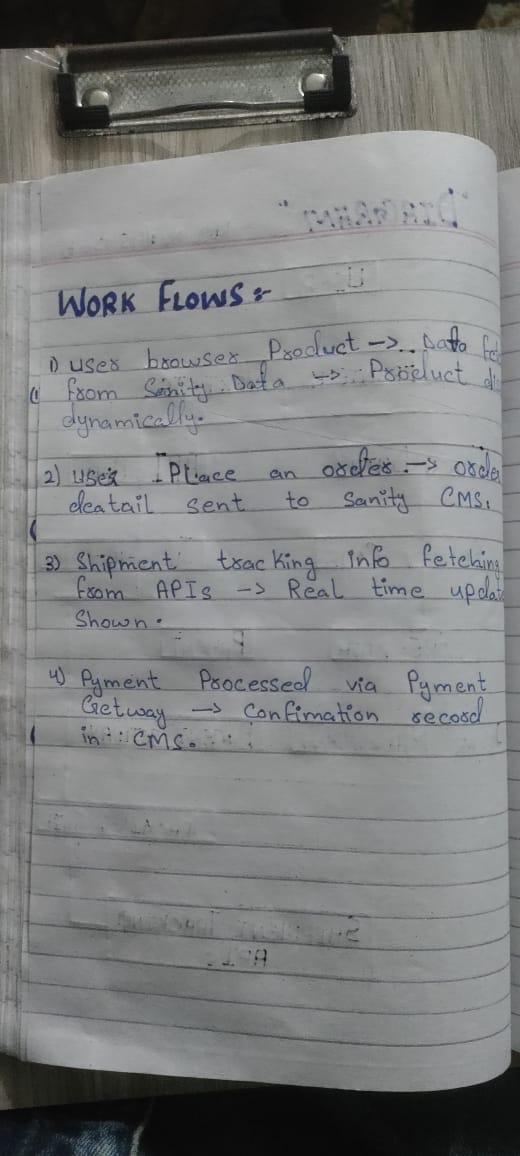 WORK FLOWS :-
1) user browser Product -> Data
from Sanity Data -> Product
dynamically.
2) user Place an order -> order
deatail sent to Sanity CMS.
3) Shipment tracking info fetching
from APIs -> Real time updat
Shown.
4) Pyment Processed via Pyment
Getway -> Confimation record
in CMS.